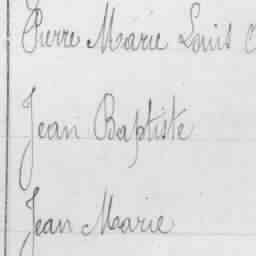 Pierre Marie Louis
Jean Baptiste
Jean Marie